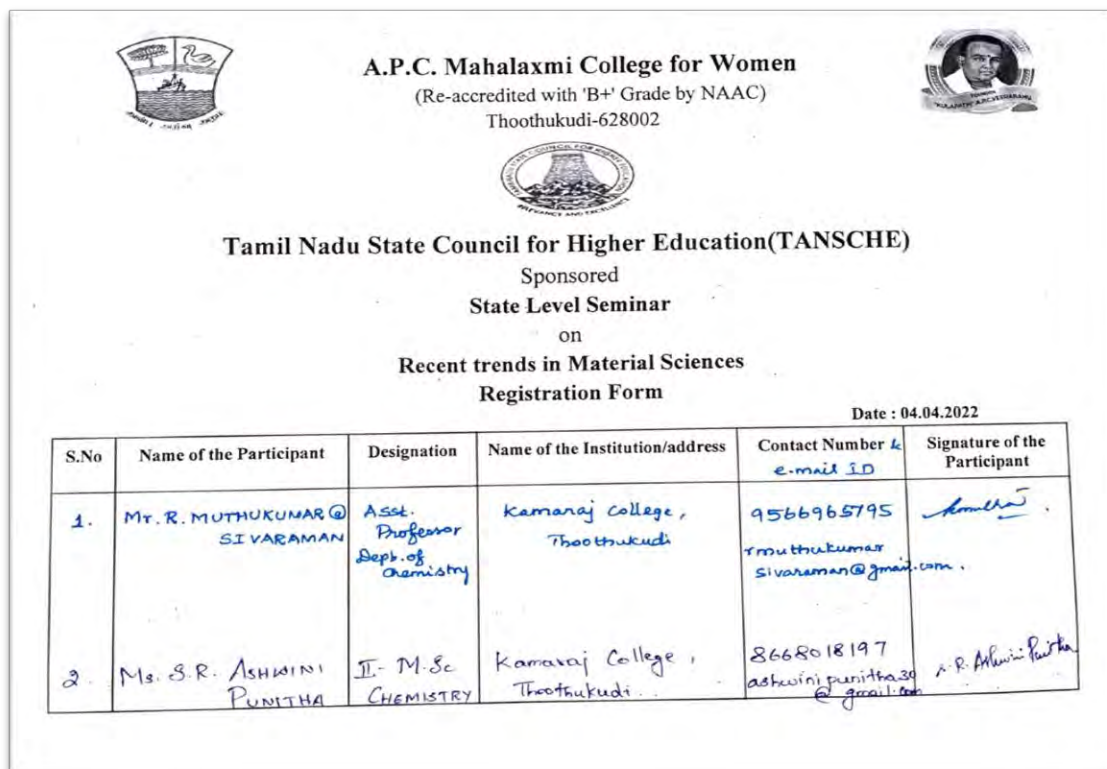 A.P.C. Mahalaxmi College for Women
(Re-accredited with 'B+' Grade by NAAC)
Thoothukudi-628002
TAMILNADU STATE COUNCIL FOR HIGHER EDUCATION
RELEVANCY AND EXCELLENCE
Tamil Nadu State Council for Higher Education(TANSCHE)
Sponsored
State Level Seminar
on
Recent trends in Material Sciences
Registration Form
Date : 04.04.2022
S.No
Name of the Participant
Designation
Name of the Institution/address
Contact Number &
e-mail ID
Signature of the
Participant
1.
Mr. R. MUTHUKUMAR@
SIVARAMAN
Asst.
Professor
Dept. of
Chemistry
Kamaraj College,
Thoothukudi
9566965795
rmuthukumar
sivaraman@gmail.com.
2.
Ms. S.R. ASHWINI
PUNITHA
II- M.Sc
CHEMISTRY
Kamaraj College,
Thoothukudi.
8668018197
ashwinipunitha30
@gmail.com
S.R. Ashwini Punitha